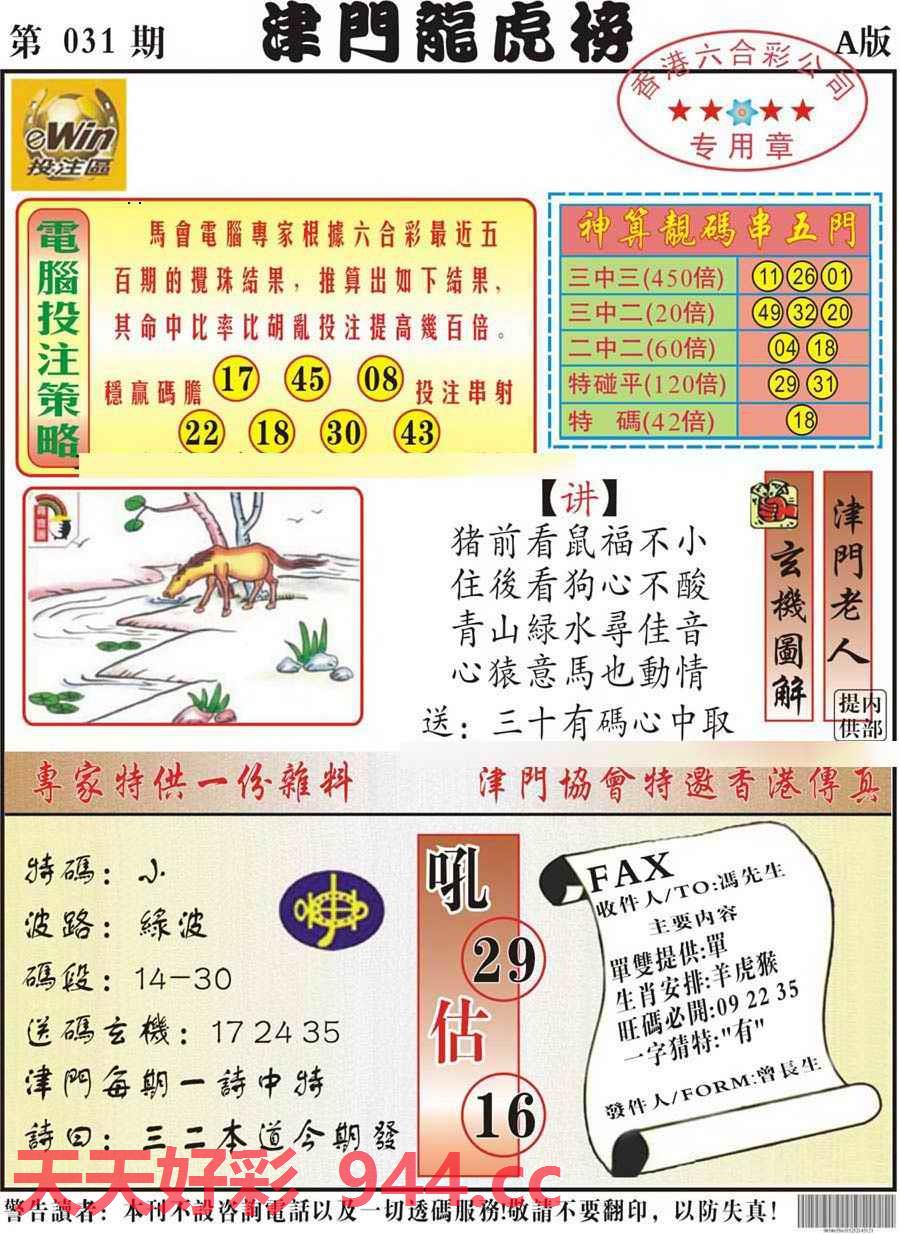 第 031 期
津門龍虎榜
A版
香港六合彩公司
专用章
eWin
投注區
電腦投注策略
馬會電腦專家根據六合彩最近五
百期的攪珠結果，推算出如下結果，
其命中比率比胡亂投注提高幾百倍。
穩贏碼膽 17 45 08 投注串射
22 18 30 43
神算靚碼串五門
三中三(450倍) 11 26 01
三中二(20倍) 49 32 20
二中二(60倍) 04 18
特碰平(120倍) 29 31
特 碼(42倍) 18
【讲】
猪前看鼠福不小
住後看狗心不酸
青山緑水尋佳音
心猿意馬也動情
送：三十有碼心中取
玄機圖解
津門老人
内部提供
專家特供一份雜料
津門協會特邀香港傳真
特碼：小
波路：綠波
碼段：14-30
送碼玄機：17 24 35
津門每期一詩中特
詩曰：三二本道今期發
吼
29
估
16
FAX
收件人/TO:馮先生
主要内容
單雙提供:單
生肖安排:羊虎猴
旺碼必開:09 22 35
一字猜特:"有"
發件人/FORM:曾長生
天天好彩 944.cc
警告讀者：本刊不設咨詢電話以及一切透碼服務!敬請不要翻印，以防失真!